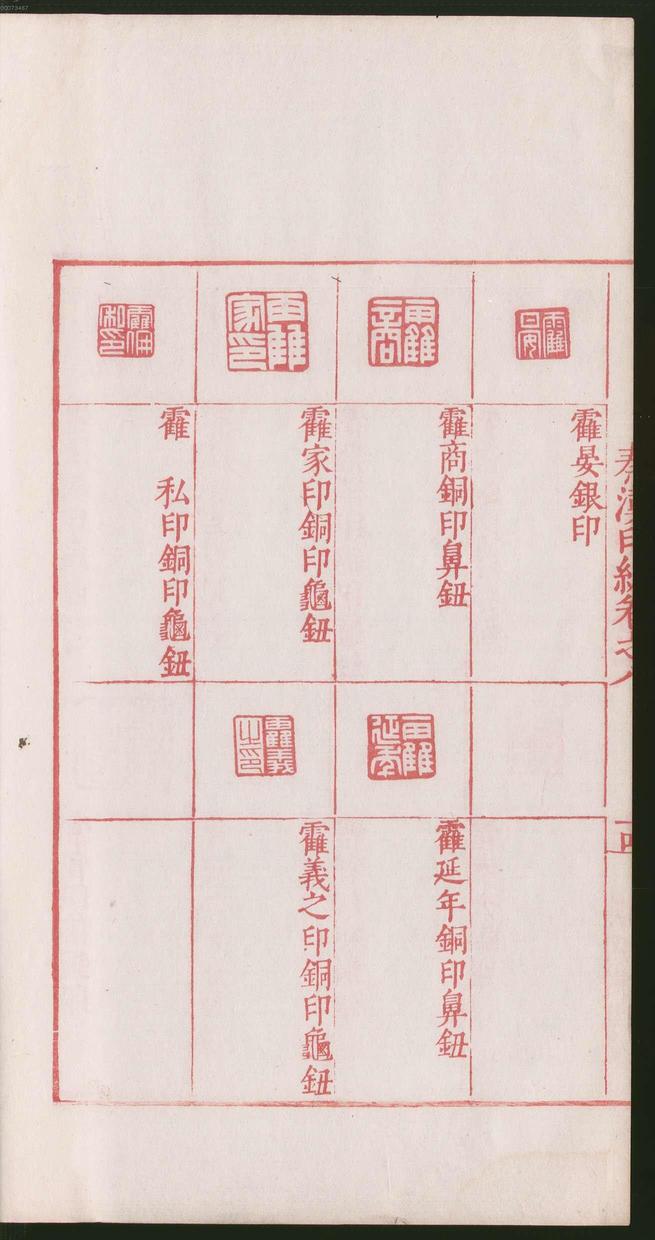 00073467
秦漢印統卷之八
霍晏銀印
霍商銅印鼻鈕
霍延年銅印鼻鈕
霍家印銅印龜鈕
霍義之印銅印龜鈕
霍　私印銅印龜鈕